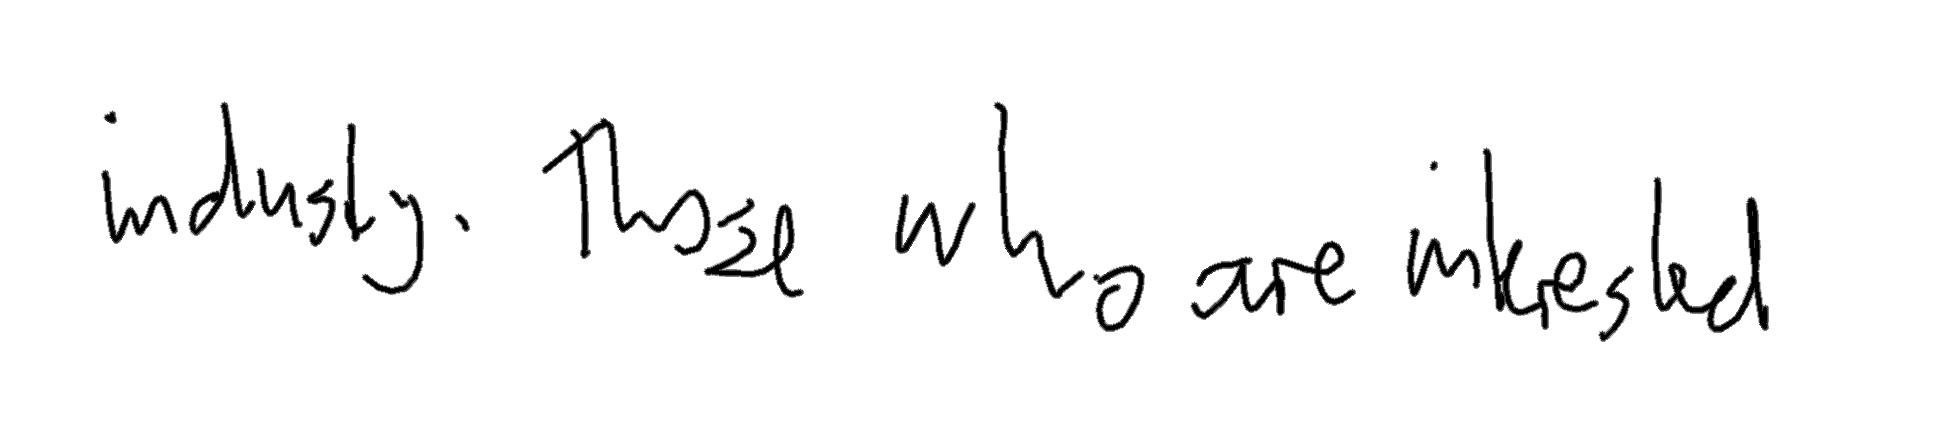 industry. Those who are interested